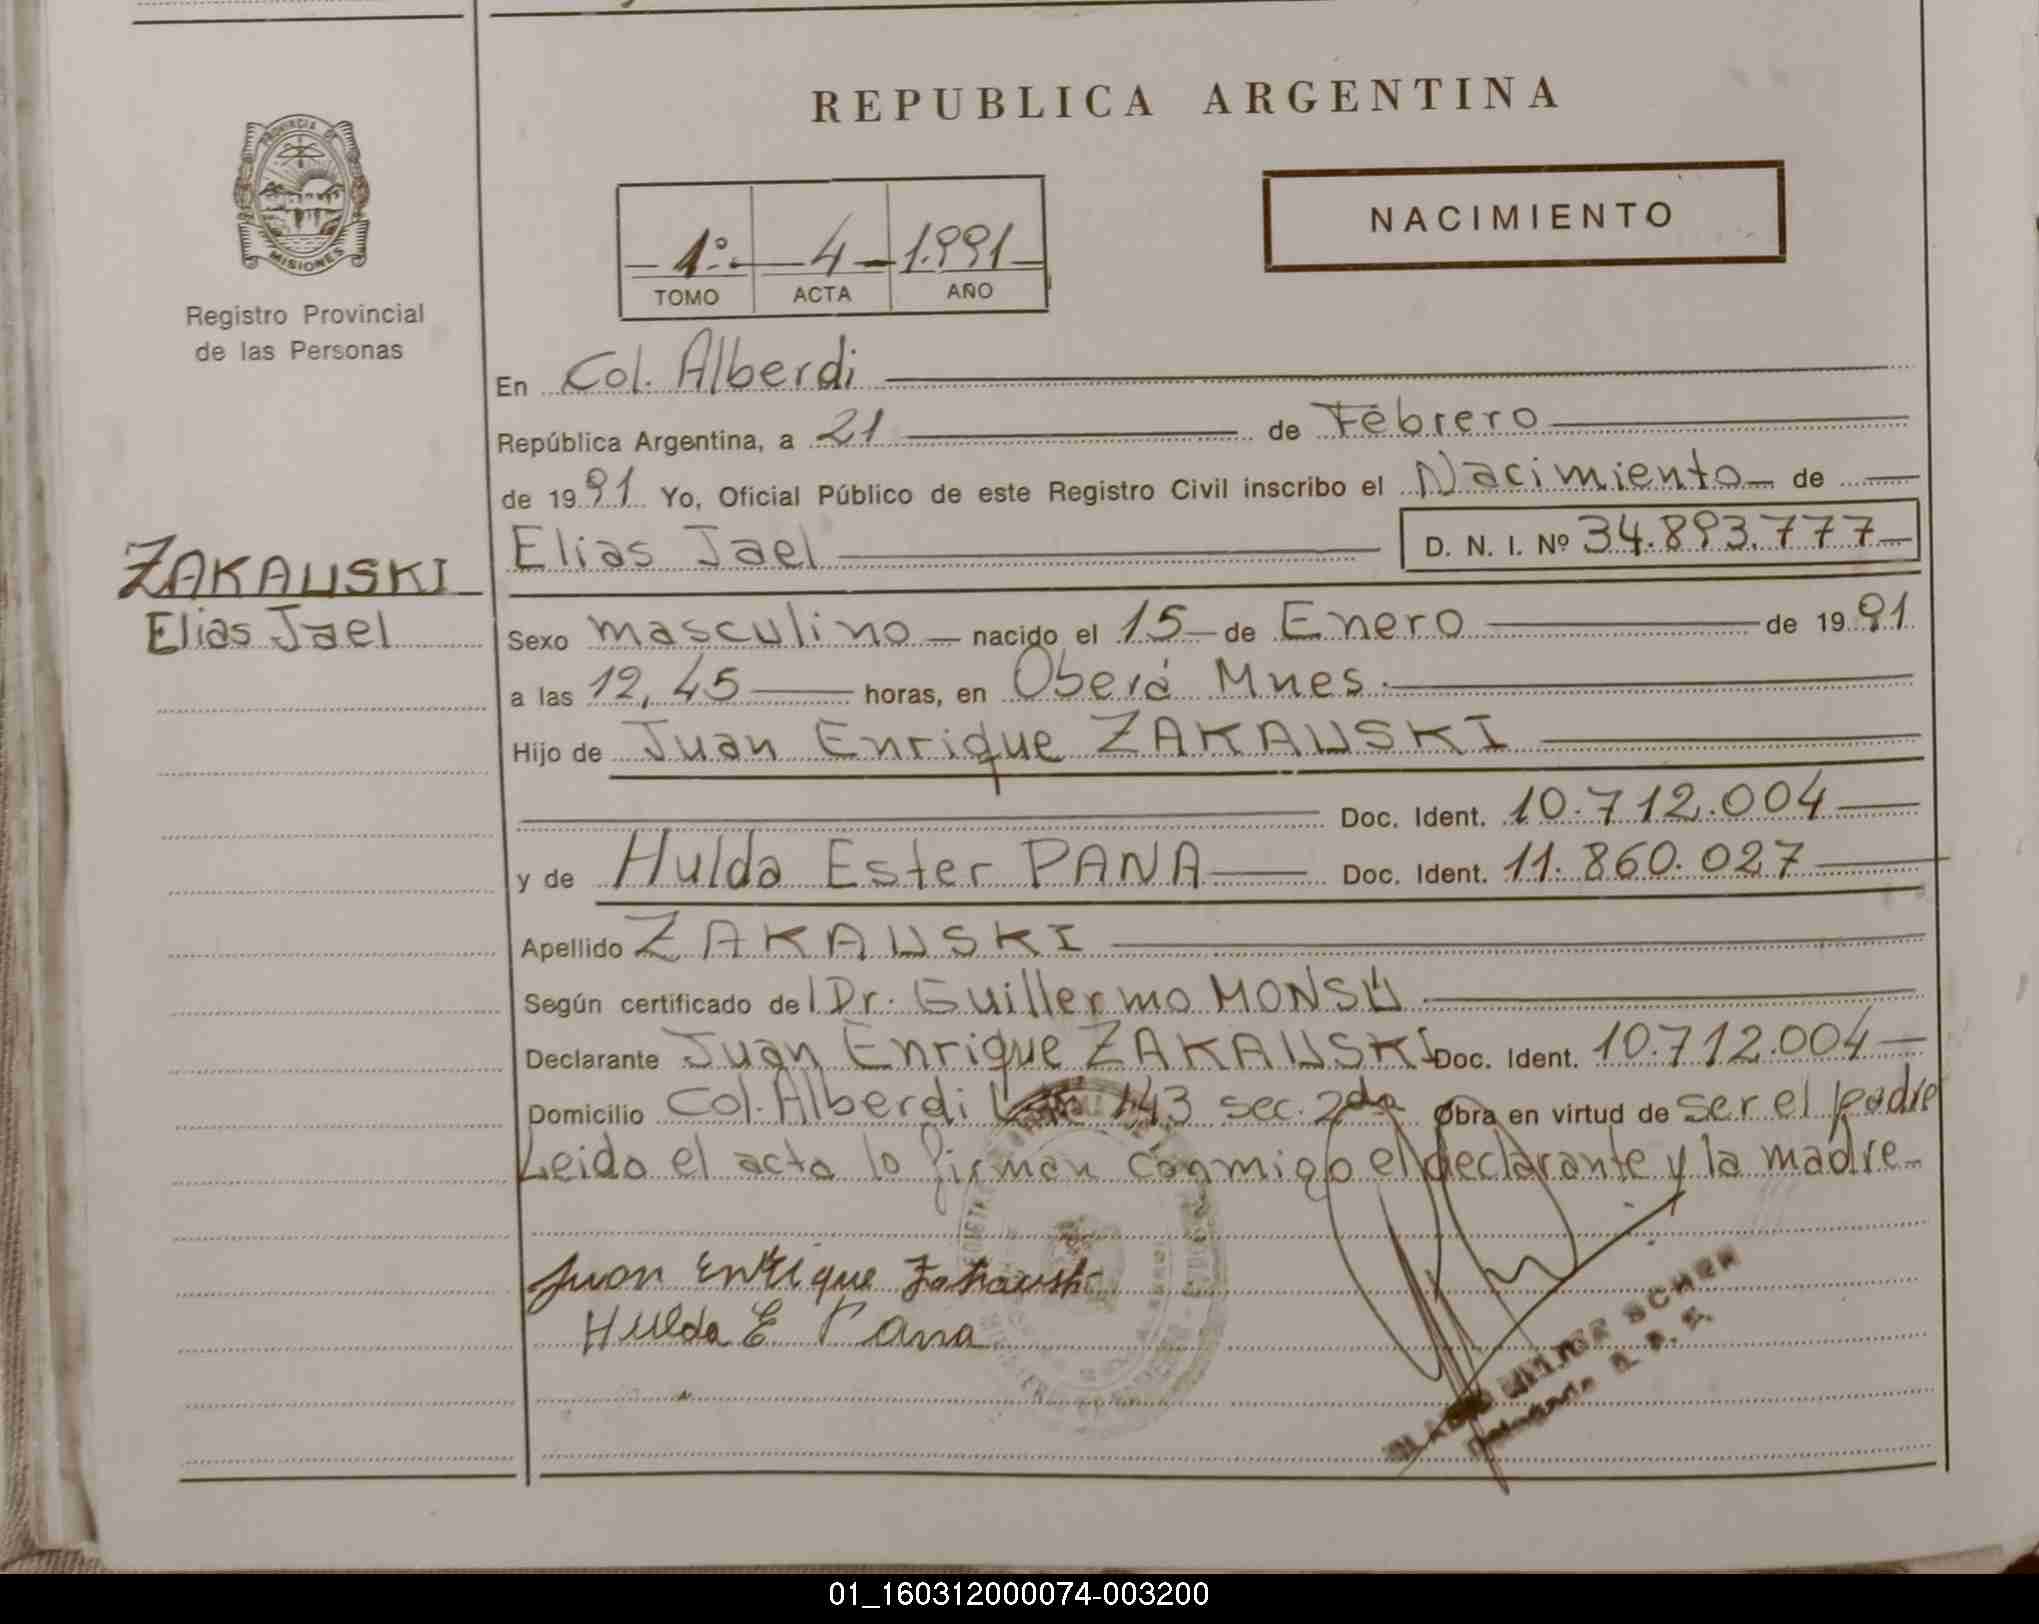 REPUBLICA ARGENTINA
PROVINCIA DE
MISIONES
Registro Provincial
de las Personas
NACIMIENTO
1º 4 1.991
TOMO ACTA AÑO
En Col. Alberdi
República Argentina, a 21 de Febrero
de 1991 Yo, Oficial Público de este Registro Civil inscribo el Nacimiento de
Elias Jael D. N. I. Nº 34.893.777
ZAKAUSKI
Elias Jael
Sexo masculino nacido el 15 de Enero de 1991
a las 12,45 horas, en Oberá Mnes.
Hijo de Juan Enrique ZAKAUSKI
Doc. Ident. 10.712.004
y de Hulda Ester PANA Doc. Ident. 11.860.027
Apellido ZAKAUSKI
Según certificado del Dr. Guillermo MONSÚ
Declarante Juan Enrique ZAKAUSKI Doc. Ident. 10.712.004
Domicilio Col. Alberdi 143 sec. 2da Obra en virtud de ser el padre
Leido el acta lo firman conmigo el declarante y la madre
Juan Enrique Zakauski
Hulda E Pana
SCHER
01_160312000074-003200